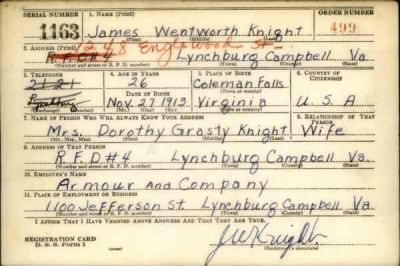 SERIAL NUMBER 1. NAME (Print) ORDER NUMBER
1163 James Wentworth Knight 499
(First) (Middle) (Last)
1248 Englewood St.
2. ADDRESS (Print)
R.F.D.#4 Lynchburg Campbell Va.
(Number and street or R. F. D. number) (Town) (County) (State)
3. TELEPHONE 4. AGE IN YEARS 5. PLACE OF BIRTH 6. COUNTRY OF CITIZENSHIP
2121 26 Coleman Falls
DATE OF BIRTH (Town or county)
Lynchburg Nov. 27 1913 Virginia U.S.A
(Exchange) (Number) (Mo.) (Day) (Yr.) (State or country)
7. NAME OF PERSON WHO WILL ALWAYS KNOW YOUR ADDRESS 8. RELATIONSHIP OF THAT PERSON
Mrs. Dorothy Grasty Knight Wife
(Mr., Mrs., Miss) (First) (Middle) (Last)
9. ADDRESS OF THAT PERSON
R.F.D#4 Lynchburg Campbell Va.
(Number and street or R. F. D. number) (Town) (County) (State)
10. EMPLOYER'S NAME
Armour And Company
11. PLACE OF EMPLOYMENT OR BUSINESS
1100 Jefferson St. Lynchburg Campbell Va.
(Number and street or R. F. D. number) (Town) (County) (State)
I AFFIRM THAT I HAVE VERIFIED ABOVE ANSWERS AND THAT THEY ARE TRUE.
REGISTRATION CARD
D. S. S. Form 1
J W Knight
(Registrant's signature)